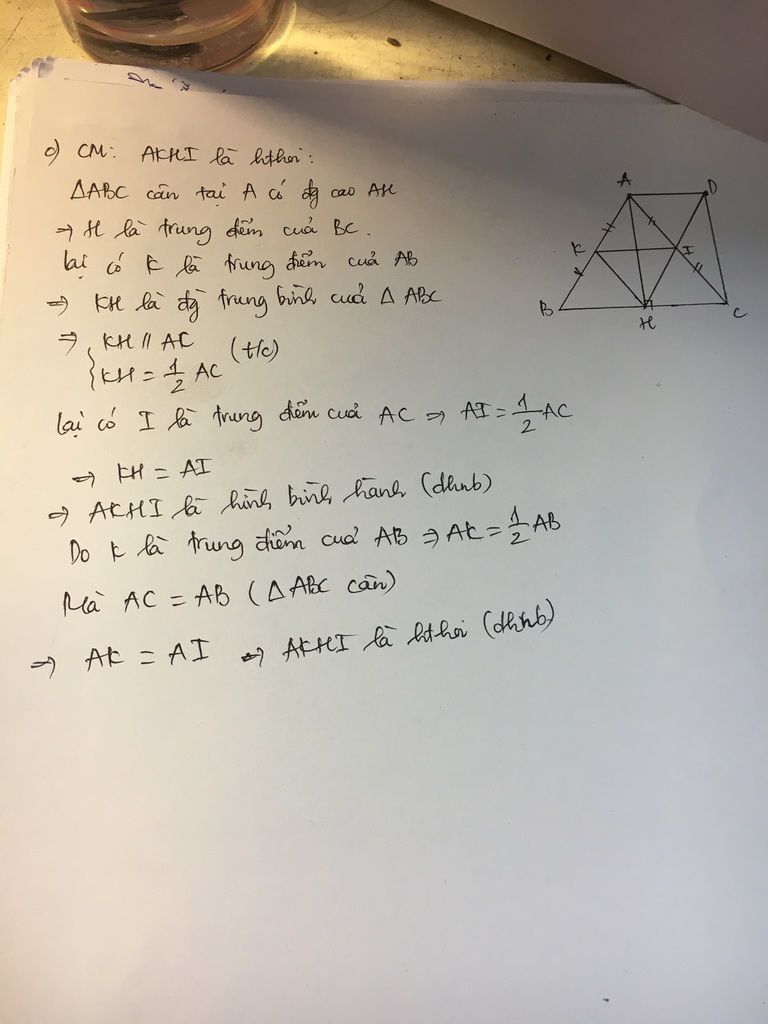 c) CM: AKHI là hthoi:
ΔABC cân tại A có đg cao AH
⇒ H là trung điểm của BC.
Lại có K là trung điểm của AB
⇒ KH là đg trung bình của Δ ABC
⇒ { KH // AC (t/c)
KH = 1/2 AC
Lại có I là trung điểm của AC ⇒ AI = 1/2 AC
⇒ KH = AI
⇒ AKHI là hình bình hành (dhnb)
Do K là trung điểm của AB ⇒ AK = 1/2 AB
Mà AC = AB (Δ ABC cân)
⇒ AK = AI ⇒ AKHI là hthoi (dhnb)
A D
K I
B H C